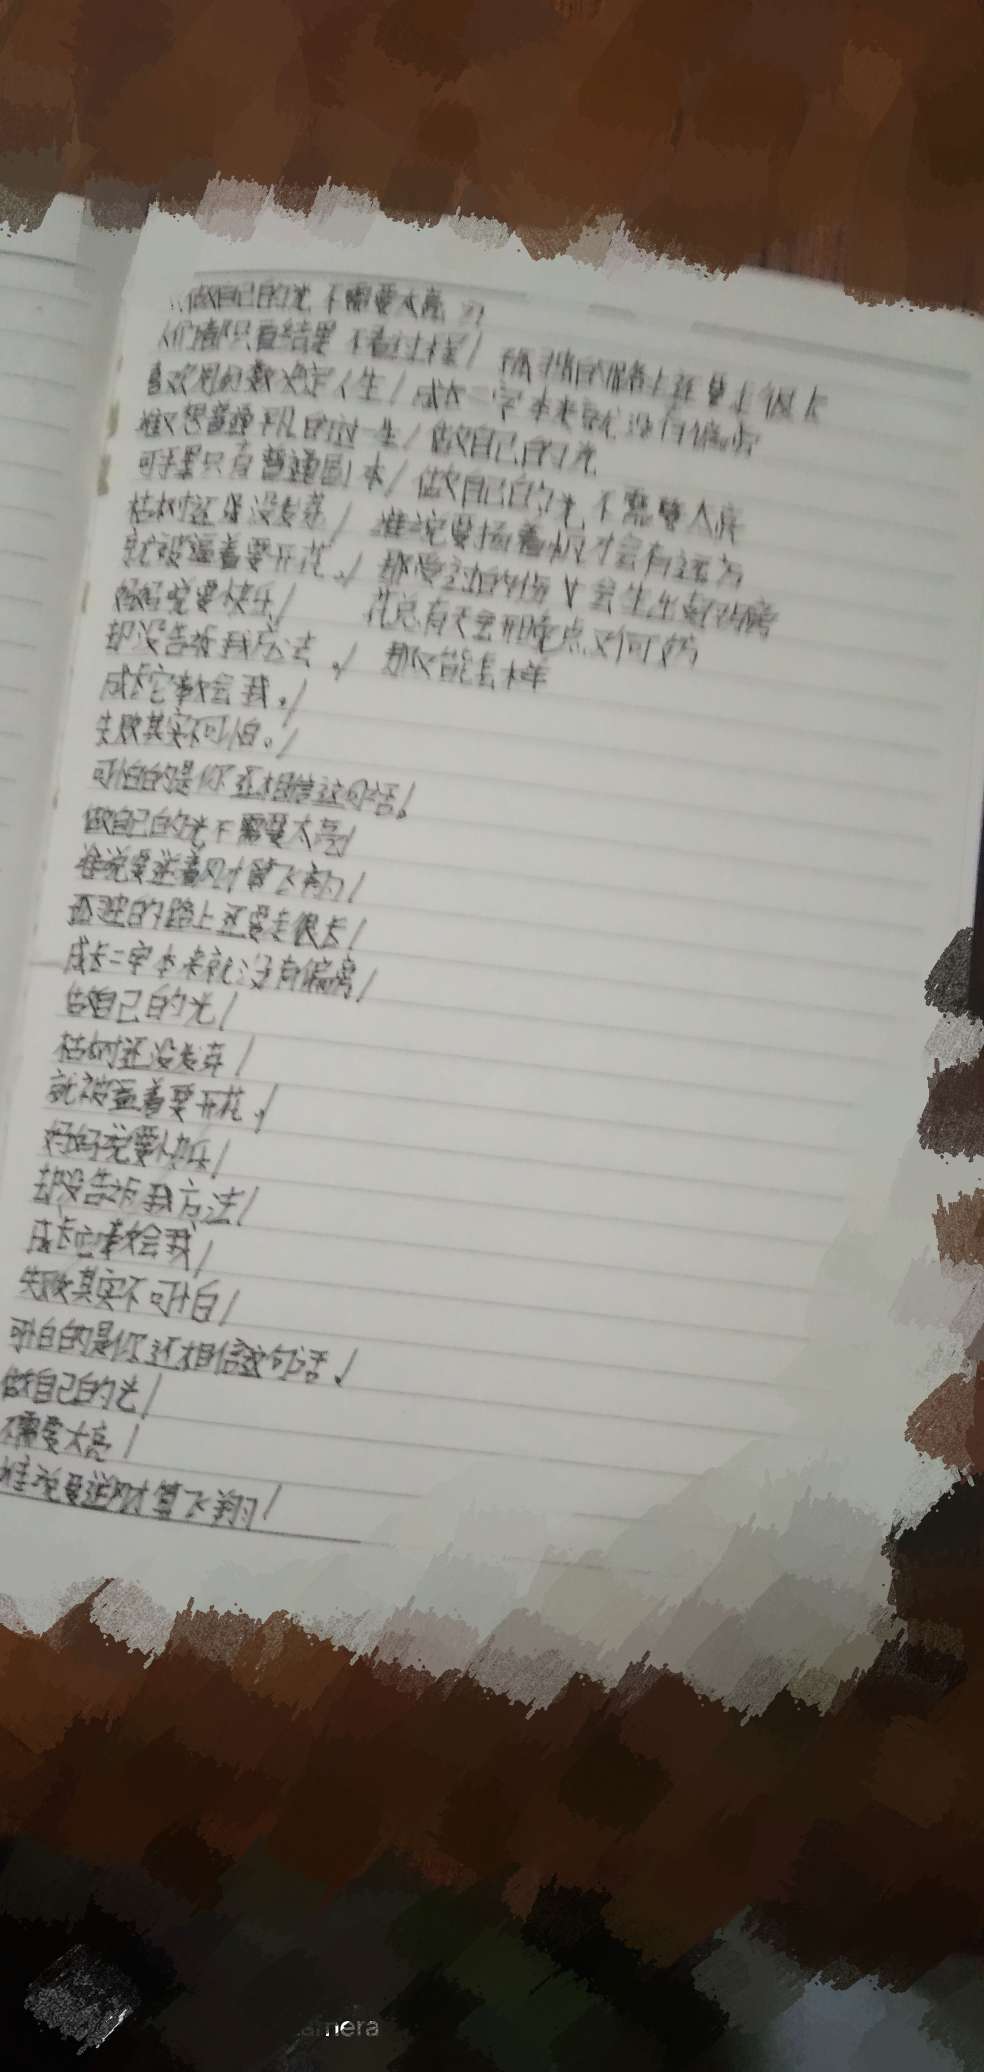 做自己的光 不需要太亮
人们都只看结果 不看过程/ 孤独的路上还要走很长
喜欢用分数决定人生/ 成长二字本来就没有偏旁
谁又想普通平凡的过一生/ 做自己的光
可手里只有普通剧本/ 做自己的光 不需要太亮
枯树还没发芽/ 谁说要扬着帆才会有远方
就被逼着要开花,/ 那受过的伤 会生出
好好说要快乐/ 花总有天会开晚点又何妨
却没告诉我方法,/ 那又能怎样
成长它教会我,/
失败其实不可怕。/
可怕的是你还相信这句话。/
做自己的光不需要太亮/
谁说要逆着风才算飞翔/
孤独的路上还要走很长/
成长二字本来就没有偏旁/
做自己的光/
枯树还没发芽/
就被逼着要开花,/
好好说要快乐/
却没告诉我方法/
成长它教会我/
失败其实不可怕/
可怕的是你还相信这句话,/
做自己的光/
不需要太亮/
谁说要逆风才算飞翔/
amera